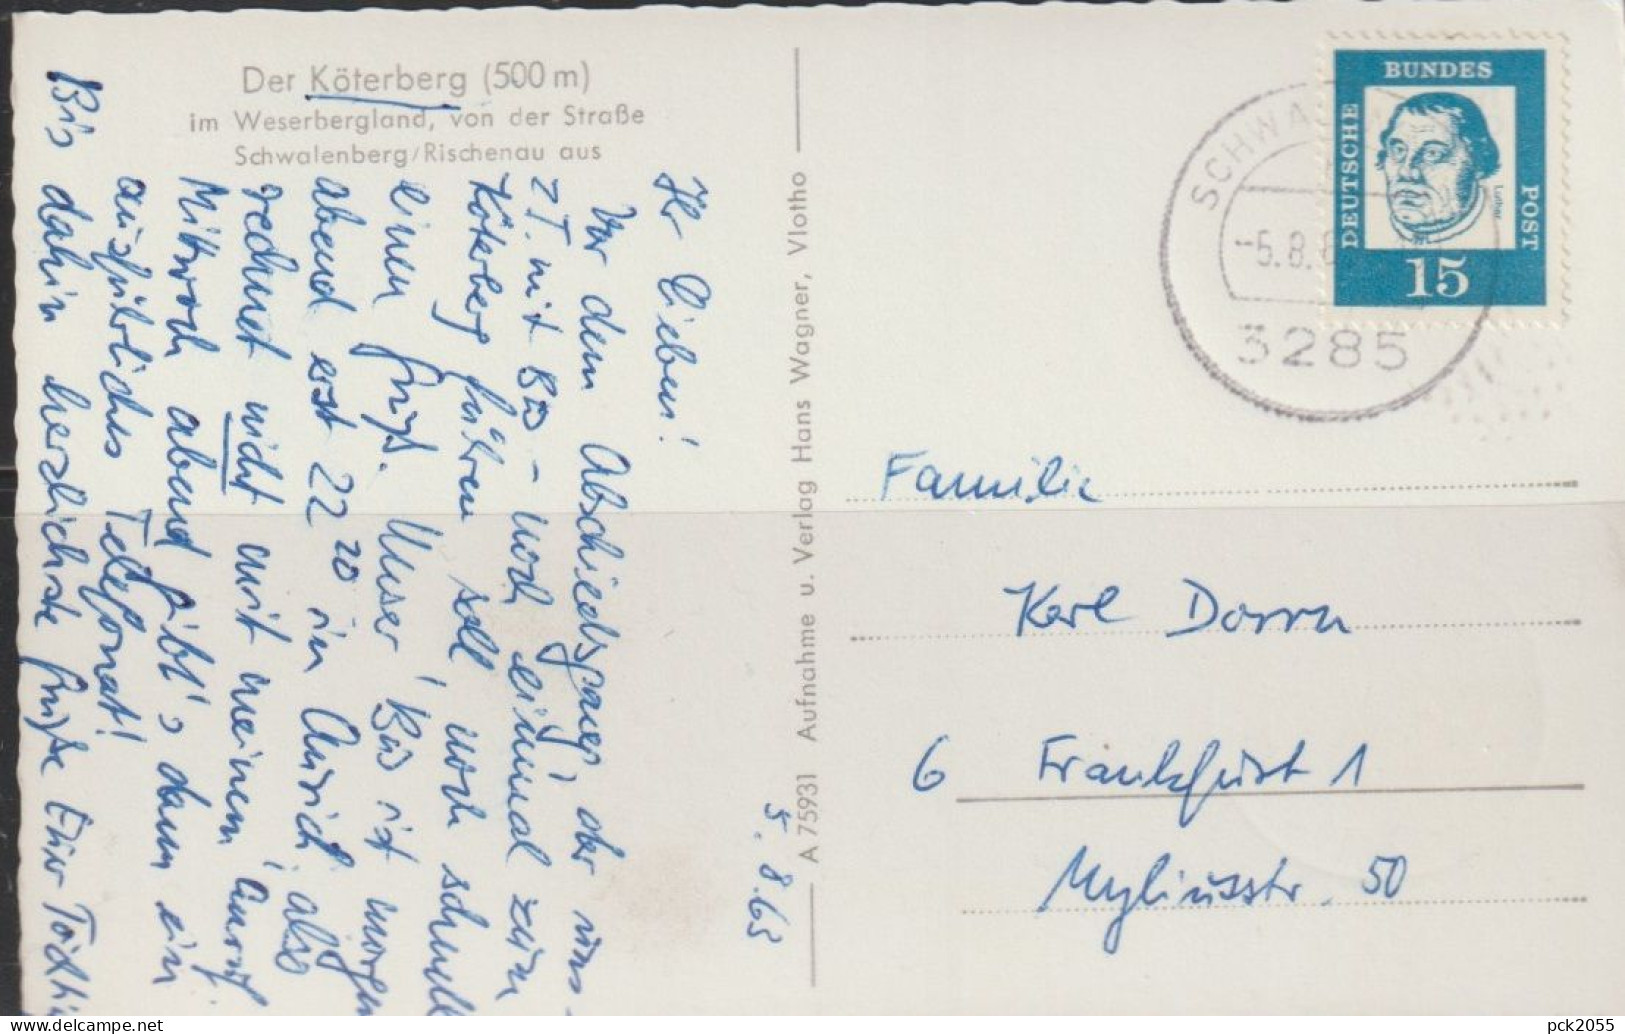 Der Köterberg (500 m)
im Weserbergland, von der Straße
Schwalenberg/Rischenau aus
5.8.63
Ihr Lieben!
Vor dem Abschiedsgang, der uns
z.T. mit Bus - noch einmal zum
Köterberg führen soll noch schnell
einen Gruß. Unser Bus ist morgen
abend erst 22 20 in Aurich, also
rechnet nicht mit meinem Anruf
Mittwoch abend gibt's dann ein
ausführliches Telefonat!
Bis dahin herzlichste Grüße Eure
A 75931 Aufnahme u. Verlag Hans Wagner, Vlotho
DEUTSCHE
BUNDES
POST
Luther
15
SCHWA
-5.8.6
3285
Familie
Karl Dorrn
6 Frankfurt 1
Myliusstr. 50
pck2055